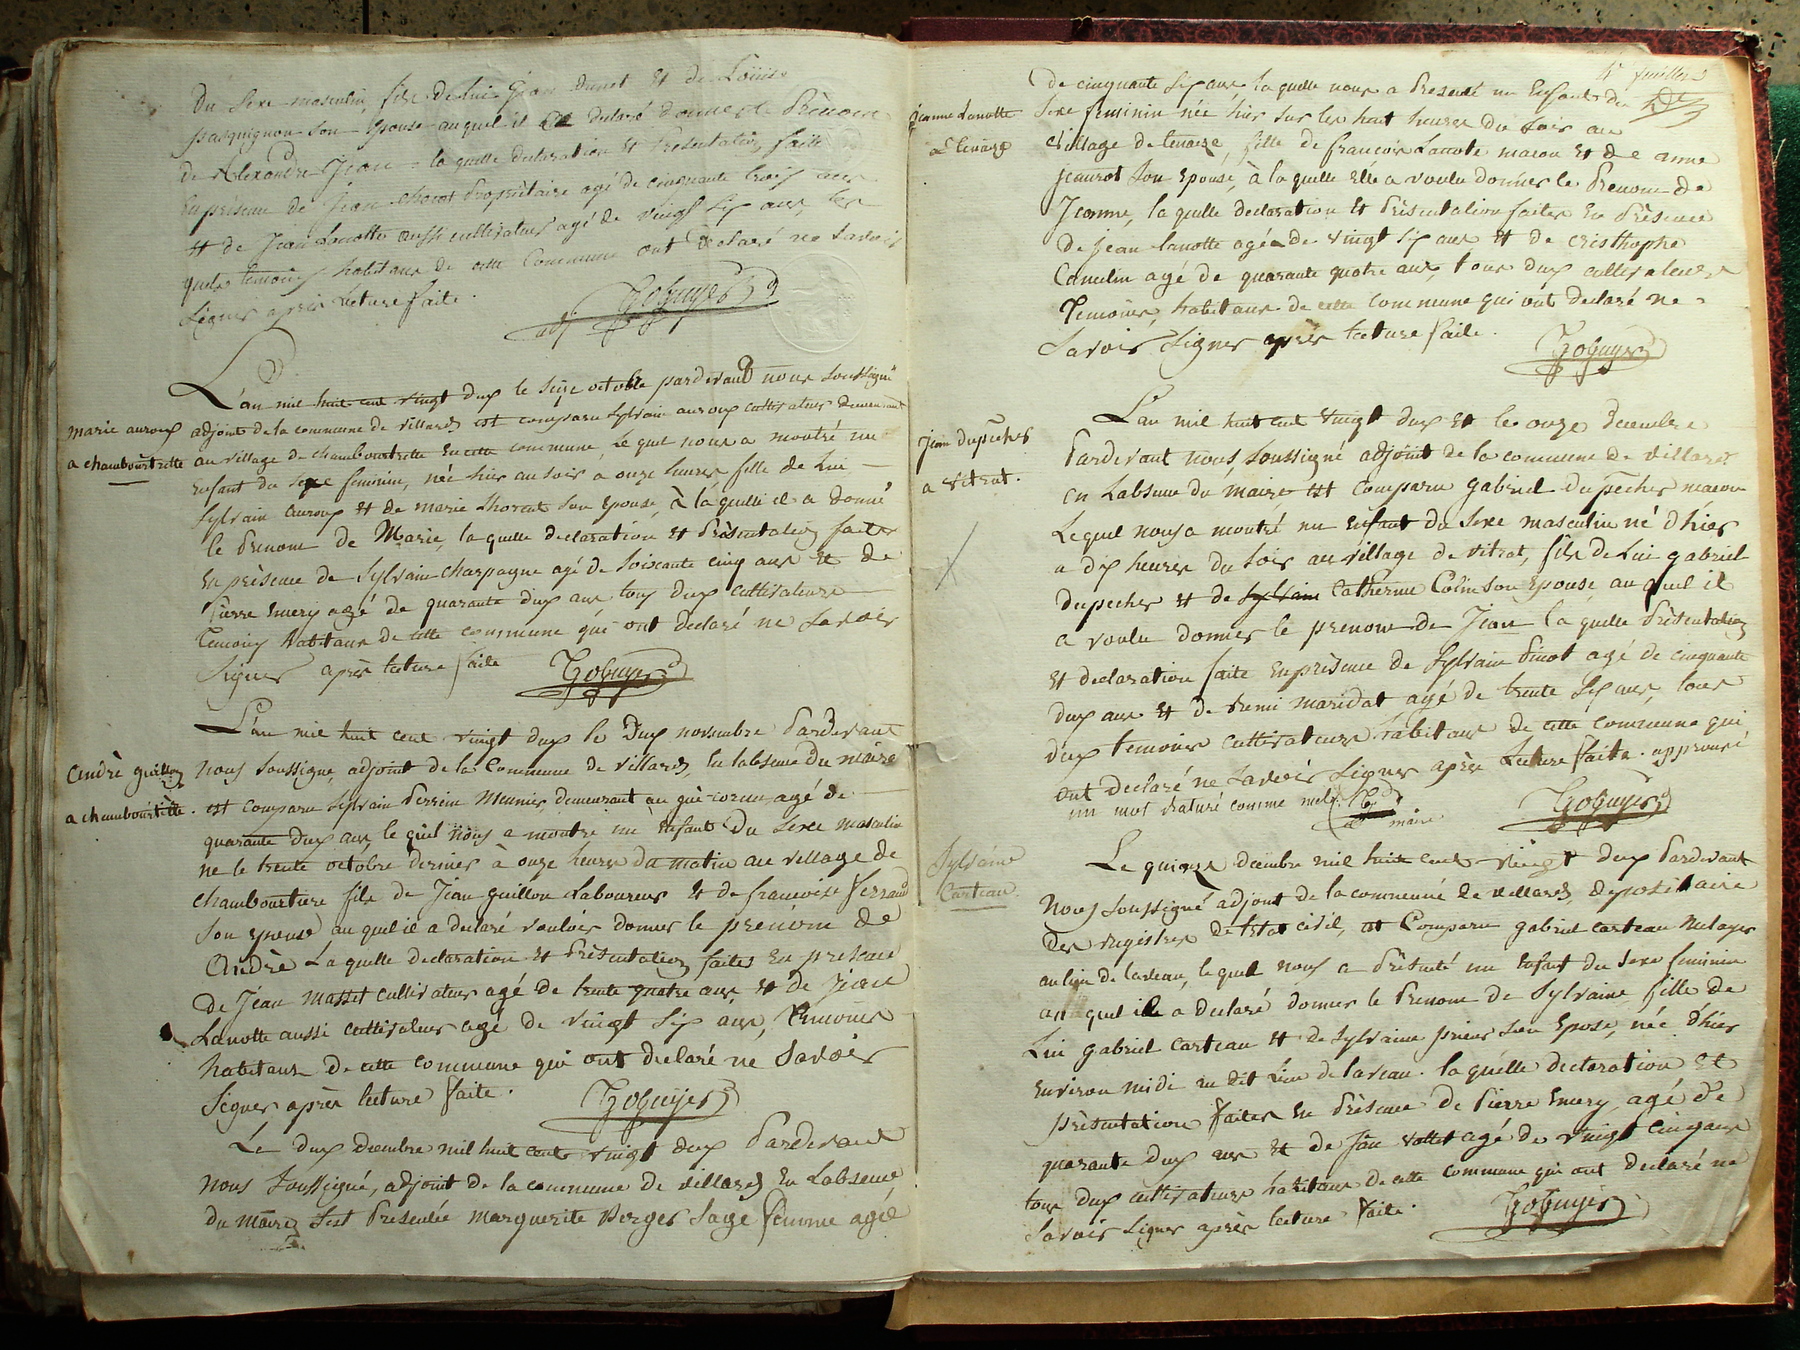 Du Sexe masculin, fils de lui Jean Dunet et de Louise
pasquignon son Epouse auquel il a declaré donner le Prenom
de Alexandre Jean = la quelle declaration et Presentation faite
En présence de Jean Propriétaire agé de cinquante trois ans
et de Jean Lanotte aussi cultivateur agé de vingt six ans, les
quels temoins habitans de cette Commune ont declaré ne savoir
signer après lecture faite.
adj
marie auroux
a chambourtrette
L'an mil huit cent vingt deux le seize octobre pardevant nous soussigné
adjoint de la commune de villards est comparu sylvain auroux cultivateur demeurant
au village de chambourtrette en cette commune, Le quel nous a montré un
Enfant du sexe feminin, née hier au soir a onze heures fille de Lui
sylvain auroux et de marie thoret son Epouse, à la quelle il a donné
le Prenom de Marie, la quelle declaration et Présentation faites
En présence de Sylvain Charpagne agé de soixante cinq ans et de
Pierre Emery agé de quarante deux ans tous deux cultivateurs
Temoins habitans de cette commune qui ont declaré ne savoir
Signer après lecture faite
andrè guillon
a chambourtière.
L'an mil huit cent vingt deux le Deux novembre Pardevant
nous soussigné, adjoint de la Commune de villards, En labsence du maire
est comparu sylvain Perrin Meunier, demeurant au gué-cornu, agé de
quarante deux ans, le quel nous a montré un Enfant Du sexe masculin
né le trente octobre dernier à onze heures du matin au village de
chambourtiere fils de Jean guillon Laboureur et de francoise ferrand
Son epouse au quel il a declaré vouloir donner le prénom de
Andrè La quelle declaration et Présentation faites En présence
de Jean Masset cultivateur agé de trente quatre ans et de Jean
Lanotte aussi cultivateur agé de vingt six ans, Temoins
habitans de cette commune qui ont declaré ne savoir
Signer, après lecture faite.
Le deux decembre mil huit cent vingt deux Pardevant
nous soussigné, adjoint de la commune de villards En Labsence
du maire s'est Presentée marguerite Verger Sage femme agée
4e feuillet
jeanne Lanotte
a Lenaize
De cinquante six ans la quelle nous a Presenté un Enfant du
sexe feminin née hier sur les huit heures du soir au
village de lenaize, fille de francois Lanotte macon et de anne
jeanrot son Epouse, à la quelle Elle a voulu donner le Prenom de
Jeanne, la quelle declaration et Présentation faites En Présence
de Jean lanotte agé de vingt six ans et de cristhophe
Camulin agé de quarante quatre ans, tous deux cultivateurs
Temoins, habitans de cette commune qui ont declaré ne
savoir Signer après lecture faite.
jean dupecher
a vitrat.
L'an mil huit cent vingt deux et le onze Decembre
Pardevant nous soussigné adjoint de la commune de villards
en Labsence du maire est comparu gabriel dupecher macon
Lequel nous a montré un enfant du sexe masculin né d'hier
a dix heures du soir au village de vitrat, fils de Lui gabriel
dupecher et de sylvain Catherine Colin son Epouse au quel il
a voulu donner le prenom de Jean la quelle Présentation
et declaration faite En présence de Sylvain Pinot agé de cinquante
deux ans et de remi maridat agé de trente six ans, tous
deux temoins cultivateurs habitans de cette commune qui
ont declaré ne savoir signer après Lecture faite. approuvé
un mot raturé comme nul.
maire
Sylvaine
Carteau.
Le quinze decembre mil huit cent vingt deux Pardevant
Nous soussigné adjoint de la commune de villards, depositaire
des registres de letat civil, est Comparu gabriel carteau metayer
au lieu de lareau, le quel nous a Présenté un Enfant du sexe feminin
au quel il a declaré donner le Prenom de Sylvaine fille de
Lui gabriel carteau et de Sylvaine prieur son Epose, née d'hier
environ midi au dit Lieu de lareau. la quelle declaration et
présentation faites En Présence de Pierre Emery agé de
quarante deux ans et de Jean vottet agé de vingt cinq ans
tous deux cultivateurs habitans de cette commune qui ont declaré ne
savoir signer après lecture faite.